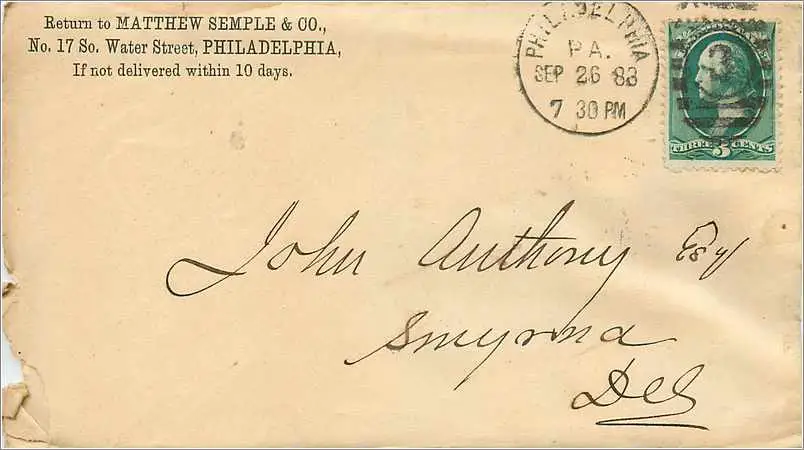 Return to MATTHEW SEMPLE & CO.,
No. 17 So. Water Street, PHILADELPHIA,
If not delivered within 10 days.
PHILADELPHIA
P.A.
SEP 26 83
7 30 PM
3
THREE 3 CENTS
John Anthony Esq
Smyrna
Del